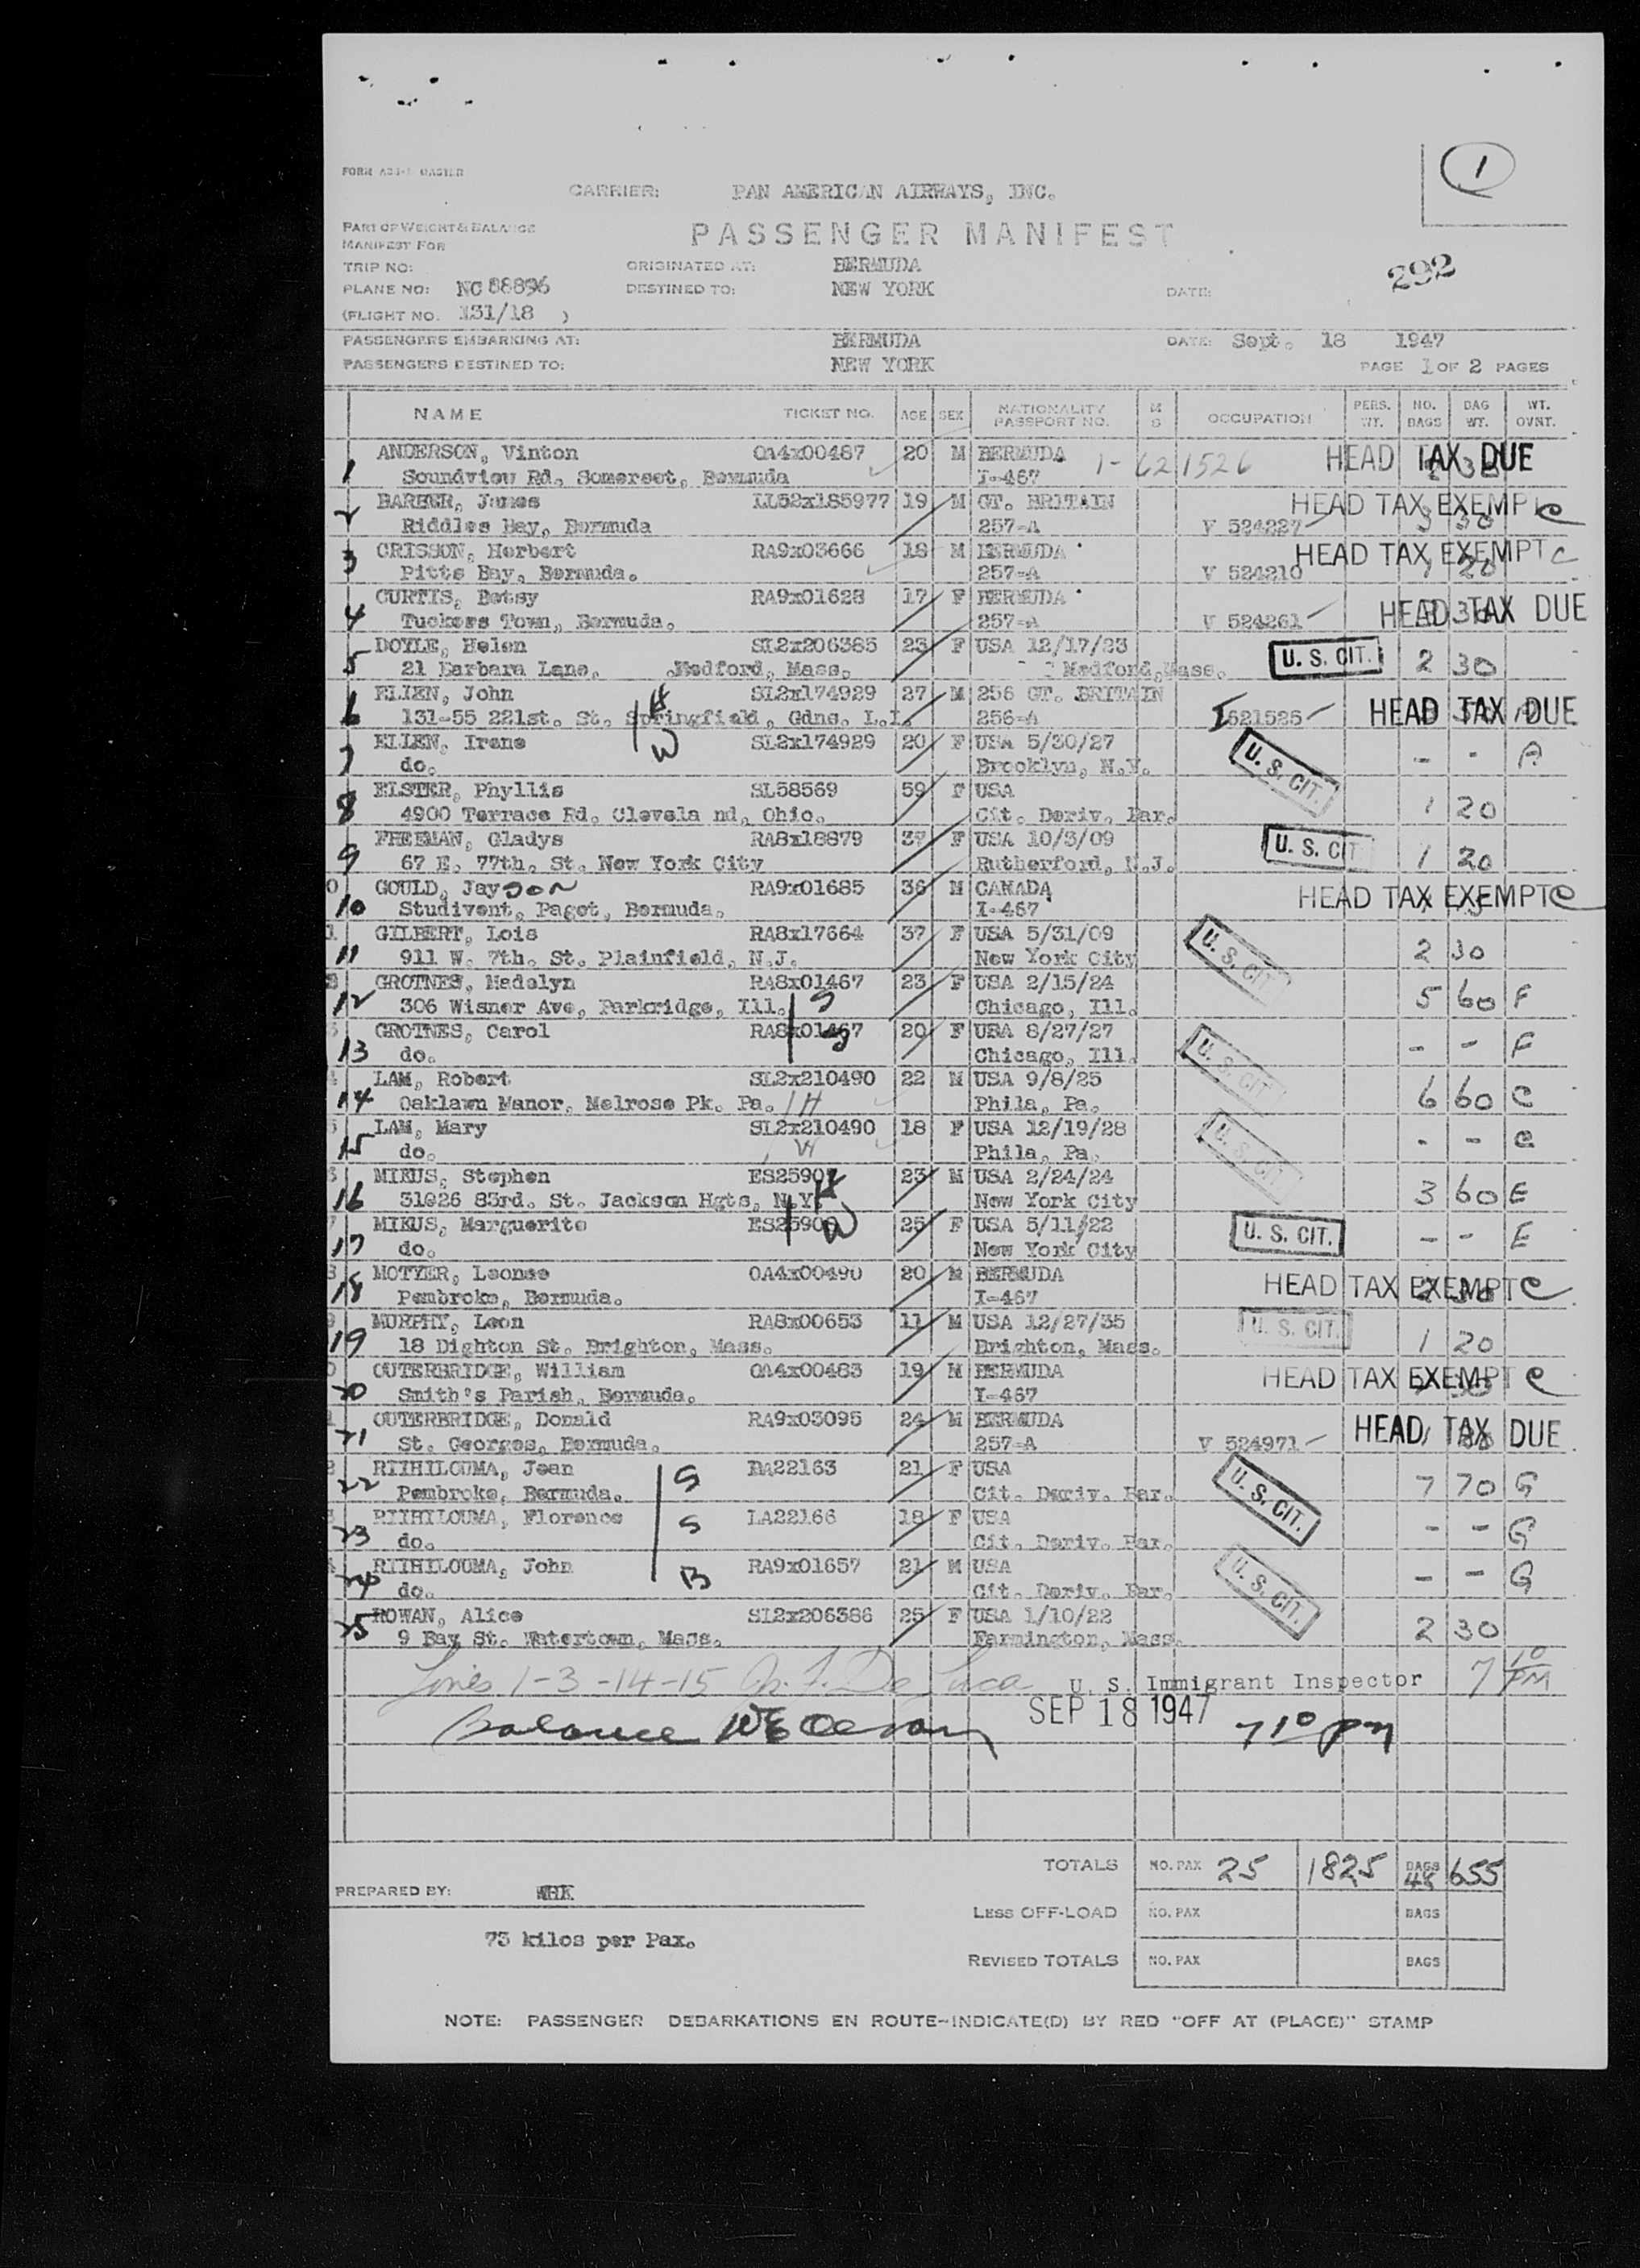 1
FORM
CARRIER: PAN AMERICAN AIRWAYS, INC.
PART OF WEIGHT & BALANCE
MANIFEST FOR
PASSENGER MANIFEST
292
TRIP NO: ORIGINATED AT: BERMUDA
PLANE NO: NC 88896 DESTINED TO: NEW YORK DATE:
(FLIGHT NO. 131/18 )
PASSENGERS EMBARKING AT: BERMUDA DATE: Sept. 18 1947
PASSENGERS DESTINED TO: NEW YORK PAGE 1 OF 2 PAGES
NAME TICKET NO. AGE SEX NATIONALITY PASSPORT NO. M S OCCUPATION PERS. WT. NO. BAGS BAG WT. WT. OVNT.
ANDERSON, Vinton OA4x00487 20 M BERMUDA I-621526 HEAD TAX DUE
1 Soundview Rd. Somerset, Bermuda I-467
BARBER, James LL52x185977 19 M GT. BRITAIN HEAD TAX EXEMPT C
2 Riddles Bay, Bermuda 257-A V 524227 3 30
CRISSON, Herbert RA9x03666 18 M BERMUDA HEAD TAX EXEMPT C
3 Pitts Bay, Bermuda. 257-A V 524210 1 20
CURTIS, Betsy RA9x01628 17 F BERMUDA HEAD TAX DUE
4 Tuckers Town, Bermuda. 257-A V 524261
DOYLE, Helen SL2x206385 23 F USA 12/17/23 U. S. CIT. 2 30
5 21 Barbara Lane, Medford, Mass. Medford, Mass.
ELLEN, John H SL2x174929 27 M 256 GT. BRITAIN
6 131-55 221st. St. Springfield, Gdns. L.I. 256-A I 621525 HEAD TAX DUE
ELLEN, Irene W SL2x174929 20 F USA 5/30/27 U. S. CIT. - - A
7 do. Brooklyn, N.Y.
ELSTER, Phyllis SL58569 59 F USA
8 4900 Terrace Rd. Clevela nd, Ohio. Cit. Deriv. Par. 1 20
FREEMAN, Gladys RA8x18879 37 F USA 10/3/09 U. S. CIT
9 67 E. 77th. St. New York City Rutherford, N.J. 1 20
GOULD, Jayson RA9x01685 36 M CANADA HEAD TAX EXEMPT C
10 Studivent, Paget, Bermuda. I-467
GILBERT, Lois RA8x17664 37 F USA 5/31/09 U. S. CIT
11 911 W. 7th. St. Plainfield, N.J. New York City 2 30
GROTNES, Madelyn RA8x01467 23 F USA 2/15/24
12 306 Wisner Ave, Parkridge, Ill. S Chicago, Ill. 5 60 F
GROTNES, Carol RA8x01467 20 F USA 8/27/27 U. S. CIT
13 do. S Chicago, Ill. - - F
LAM, Robert SL2x210490 22 M USA 9/8/25
14 Oaklawn Manor, Melrose Pk. Pa. H Phila, Pa. 6 60 C
LAM, Mary SL2x210490 18 F USA 12/19/28 U. S. CIT - - C
15 do. W Phila, Pa.
MIKUS, Stephen ES25901 23 M USA 2/24/24
16 31@26 83rd. St. Jackson Hgts, N.Y. H New York City 3 60 E
MIKUS, Marguerite ES25900 W 25 F USA 5/11/22 U. S. CIT. - - E
17 do. New York City
MOTYER, Leonse OA4x00490 20 M BERMUDA HEAD TAX EXEMPT C
18 Pembroke, Bermuda. I-467
MURPHY, Leon RA8x00653 11 M USA 12/27/35 U. S. CIT.
19 18 Dighton St. Brighton, Mass. Brighton, Mass. 1 20
OUTERBRIDGE, William OA4x00483 19 M BERMUDA HEAD TAX EXEMPT C
20 Smith's Parish, Bermuda. I-467
OUTERBRIDGE, Donald RA9x03095 24 M BERMUDA HEAD TAX DUE
21 St. Georges, Bermuda. 257-A V 524971
RIIHILOUMA, Jean S RA22163 21 F USA U. S. CIT. 7 70 G
22 Pembroke, Bermuda. Cit. Deriv. Par.
RIIHILOUMA, Florence S LA22166 18 F USA - - G
23 do. Cit. Deriv. Par.
RIIHILOUMA, John B RA9x01657 21 M USA U. S. CIT. - - G
24 do. Cit. Deriv. Par.
ROWAN, Alice SL2x206386 25 F USA 1/10/22 2 30
25 9 Bay St. Watertown, Mass. Farmington, Mass.
Lines 1-3-14-15 De Luca U. S. Immigrant Inspector 7 10 PM
Balance SEP 18 1947 7 10 pm
TOTALS NO. PAX 25 1825 BAGS 48 655
PREPARED BY: WHK
LESS OFF-LOAD NO. PAX BAGS
73 kilos per Pax.
REVISED TOTALS NO. PAX BAGS
NOTE: PASSENGER DEBARKATIONS EN ROUTE-INDICATE(D) BY RED "OFF AT (PLACE)" STAMP